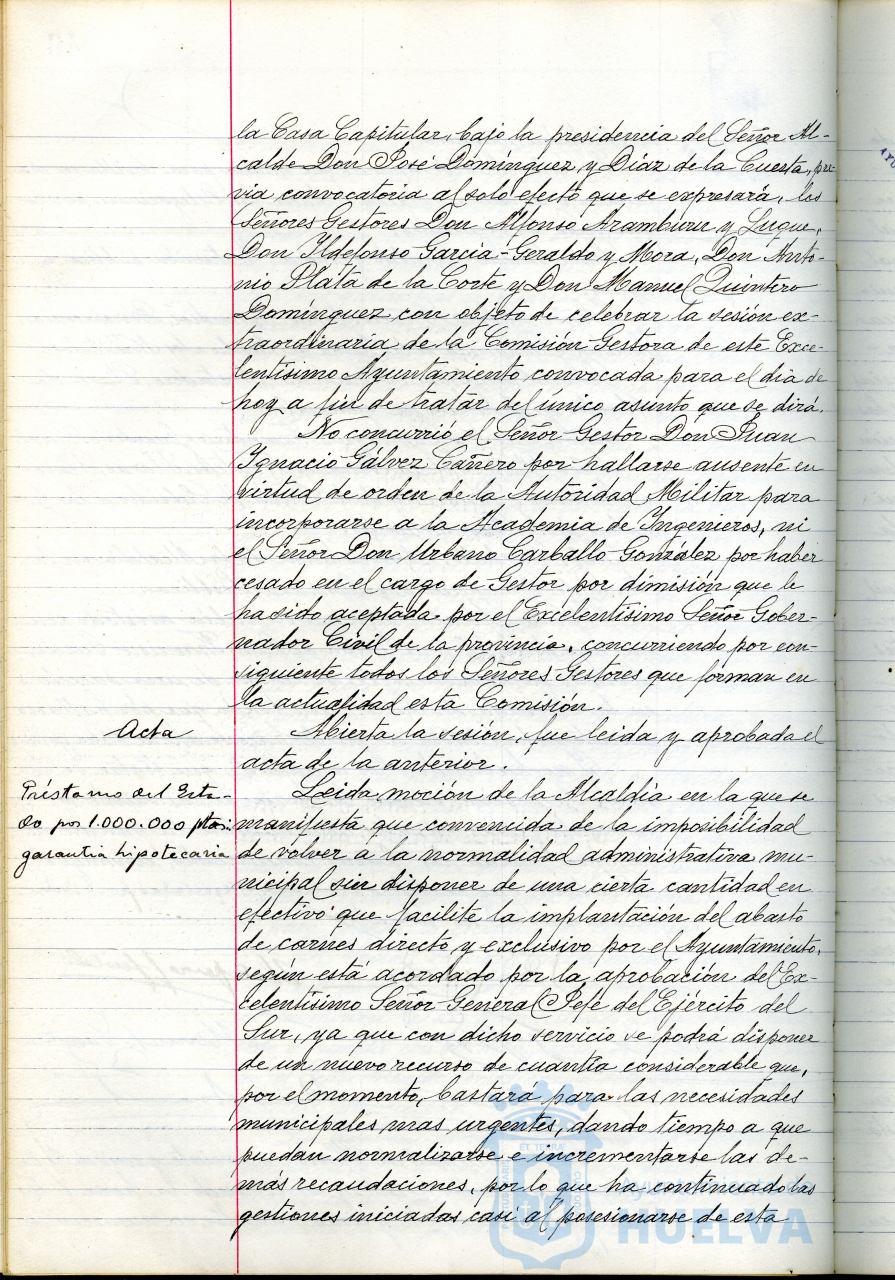 la Casa Capitular, bajo la presidencia del Señor Al-
calde Don José Domínguez y Díaz de la Cuesta, pre-
via convocatoria al solo efecto que se expresará, los
Señores Gestores Don Alfonso Aramburu y Luque,
Don Ildefonso García-Geraldo y Mora, Don Anto-
nio Plata de la Corte y Don Manuel Quintero
Domínguez con objeto de celebrar la sesión ex-
traordinaria de la Comisión Gestora de este Exce-
lentísimo Ayuntamiento convocada para el día de
hoy a fin de tratar del único asunto que se dirá.
No concurrió el Señor Gestor Don Juan
Ygnacio Gálvez Cañero por hallarse ausente en
virtud de orden de la Autoridad Militar para
incorporarse a la Academia de Ingenieros, ni
el Señor Don Urbano Carballo González por haber
cesado en el cargo de Gestor por dimisión que le
ha sido aceptada por el Excelentísimo Señor Gober-
nador Civil de la provincia, concurriendo por con-
siguiente todos los Señores Gestores que forman en
la actualidad esta Comisión.
Acta
Abierta la sesión, fue leida y aprobada el
acta de la anterior.
Préstamo del Esta-
do por 1.000.000 ptas.
garantia hipotecaria
Leida moción de la Alcaldía en la que se
manifiesta que convencida de la imposibilidad
de volver a la normalidad administrativa mu-
nicipal sin disponer de una cierta cantidad en
efectivo que facilite la implantación del abasto
de carnes directo y exclusivo por el Ayuntamiento,
según está acordado por la aprobación del Ex-
celentísimo Señor General Jefe del Ejército del
Sur, ya que con dicho servicio se podrá disponer
de un nuevo recurso de cuantía considerable que,
por el momento, bastara para las necesidades
municipales mas urgentes, dando tiempo a que
puedan normalizarse e incrementarse las de-
más recaudaciones, por lo que ha continuado las
gestiones iniciadas casi al posesionarse de esta
HUELVA